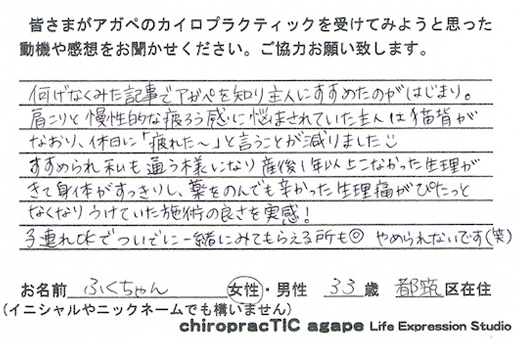 皆さまがアガペのカイロプラクティックを受けてみようと思った
動機や感想をお聞かせください。ご協力お願い致します。
何げなくみた記事でアガペを知り主人にすすめたのがはじまり。
肩こりと慢性的な疲ろう感に悩まされていた主人は猫背が
なおり、休日に「疲れた〜」と言うことが減りました
すすめられ私も通う様になり産後1年以上こなかった生理が
きて身体がすっきりし、薬をのんでも辛かった生理痛がぴたっと
なくなりうけていた施術の良さを実感!
子連れOKでついでに一緒にみてもらえる所も◎ やめられないです(笑)
お名前 ふくちゃん 女性・男性 33歳 都筑区在住
(イニシャルやニックネームでも構いません)
chiropracTIC agape Life Expression Studio